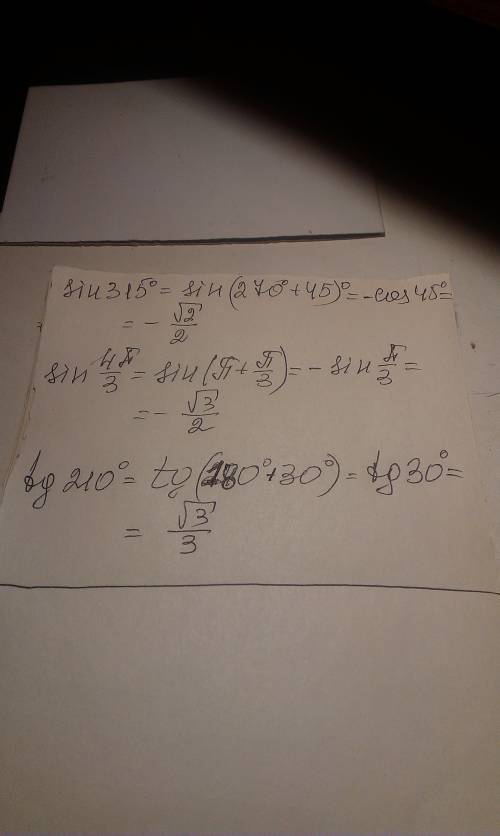 sin 315° = sin (270° + 45)° = -cos 45° =
= - √2/2
sin 4π/3 = sin (π + π/3) = - sin π/3 =
= - √3/2
tg 210° = tg (180° + 30°) = tg 30° =
= √3/3